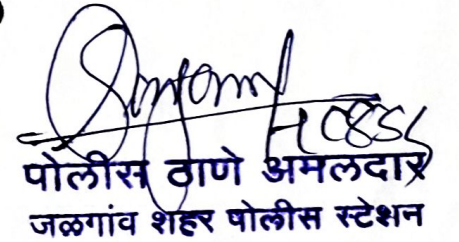 पोलीस ठाणे अमलदार
जळगांव शहर पोलीस स्टेशन